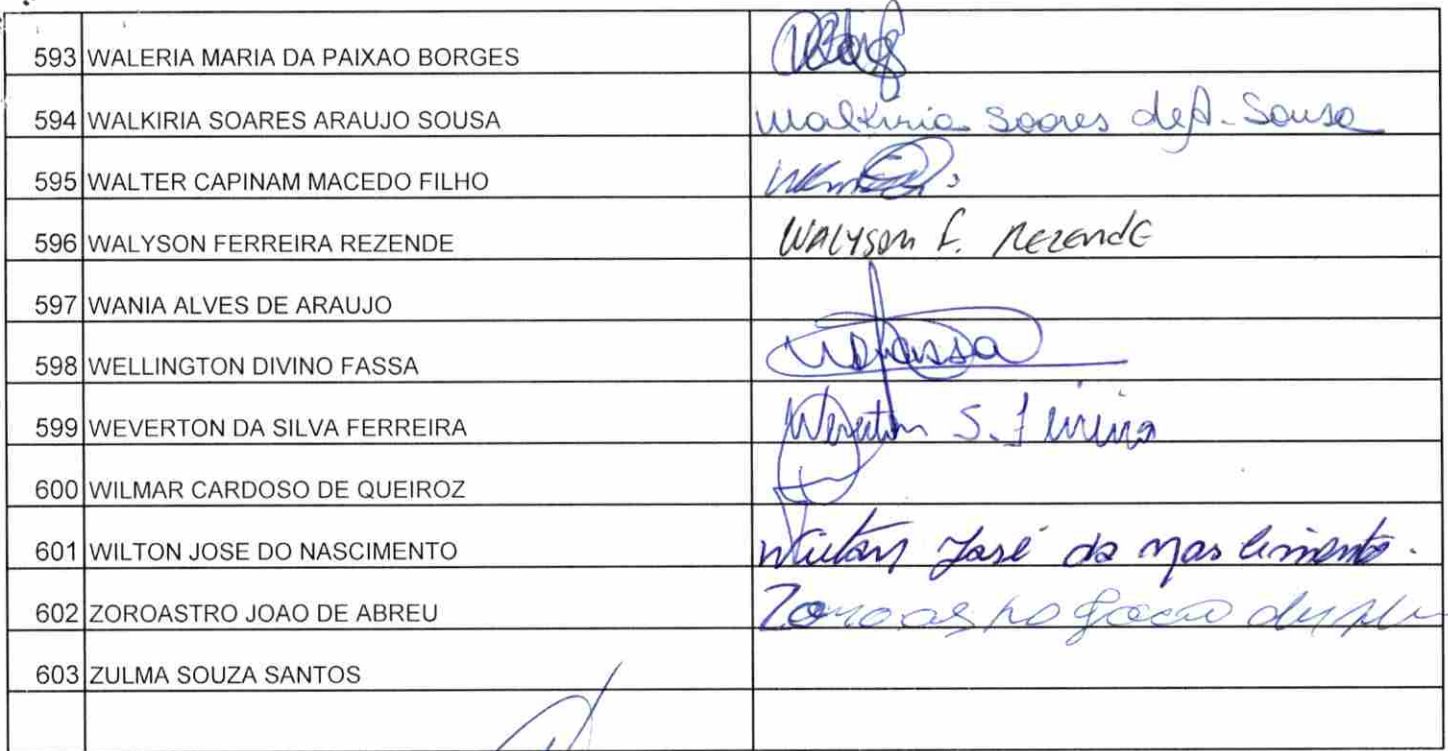 593 WALERIA MARIA DA PAIXAO BORGES
594 WALKIRIA SOARES ARAUJO SOUSA Walkiria Soares de A. Sousa
595 WALTER CAPINAM MACEDO FILHO
596 WALYSON FERREIRA REZENDE WALYSON F. REZENDE
597 WANIA ALVES DE ARAUJO
598 WELLINGTON DIVINO FASSA WDFassa
599 WEVERTON DA SILVA FERREIRA Weverton S. Ferreira
600 WILMAR CARDOSO DE QUEIROZ
601 WILTON JOSE DO NASCIMENTO Wilton José do nascimento.
602 ZOROASTRO JOAO DE ABREU Zoroastro João de
603 ZULMA SOUZA SANTOS